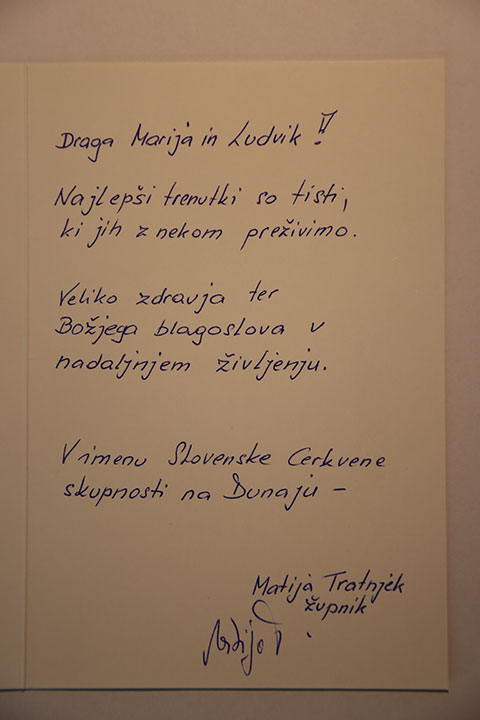 Draga Marija in Ludvik !!
Najlepši trenutki so tisti,
ki jih z nekom preživimo.
Veliko zdravja ter
Božjega blagoslova v
nadaljnjem življenju.
V imenu Slovenske Cerkvene
skupnosti na Dunaju –
Matija Tratnjek
župnik
Matija T.